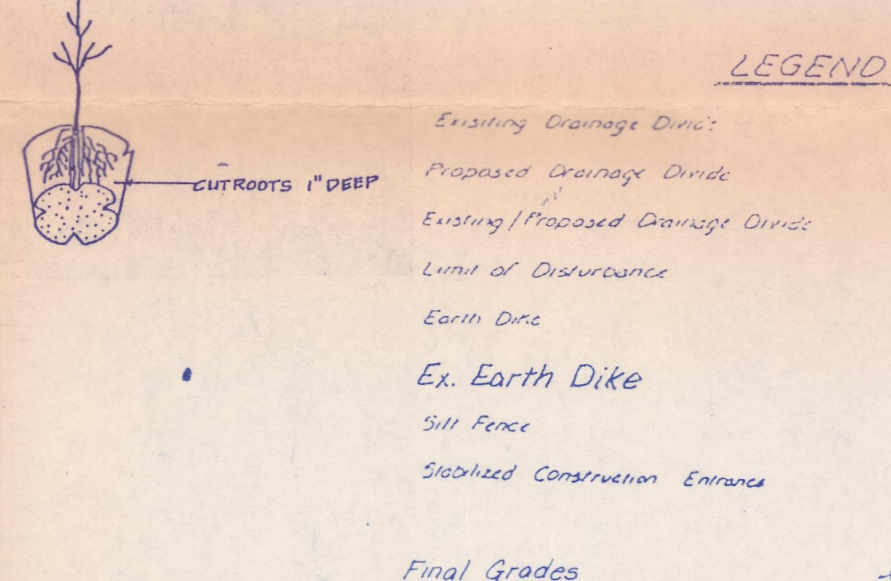 LEGEND
Existing Drainage Divide
Proposed Drainage Divide
CUT ROOTS 1" DEEP
Existing/Proposed Drainage Divide
Limit of Disturbance
Earth Dike
Ex. Earth Dike
Silt Fence
Stabilized Construction Entrance
Final Grades